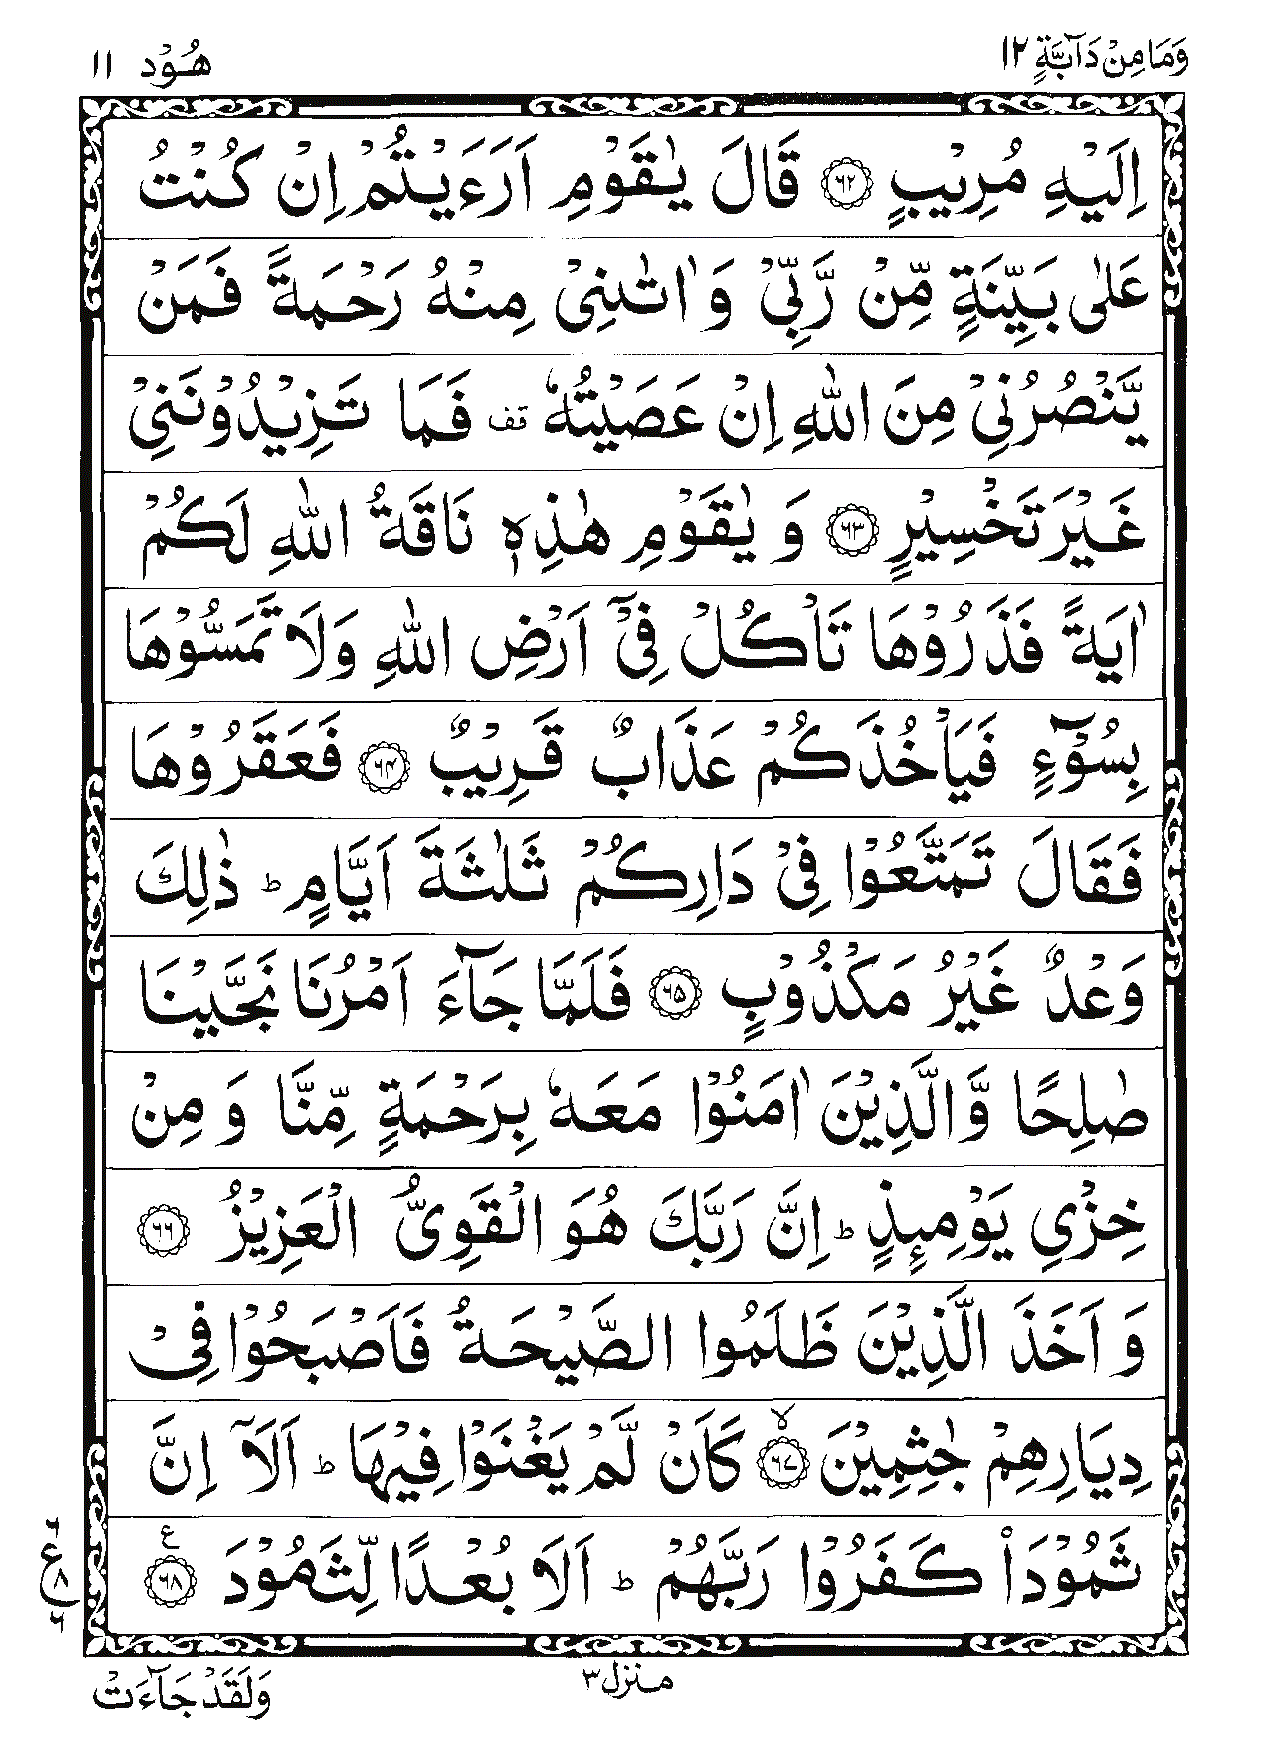 وَمَا مِنْ دَآبَّةٍ ١٢
هُوْد ١١
اِلَيْهِ مُرِيْبٍ ۝۶۲ قَالَ يٰقَوْمِ اَرَءَيْتُمْ اِنْ كُنْتُ
عَلٰى بَيِّنَةٍ مِّنْ رَّبِّيْ وَ اٰتٰىنِيْ مِنْهُ رَحْمَةً فَمَنْ
يَّنْصُرُنِيْ مِنَ اللّٰهِ اِنْ عَصَيْتُهٗ قف فَمَا تَزِيْدُوْنَنِيْ
غَيْرَ تَخْسِيْرٍ ۝۶۳ وَ يٰقَوْمِ هٰذِهٖ نَاقَةُ اللّٰهِ لَكُمْ
اٰيَةً فَذَرُوْهَا تَاْكُلْ فِيْٓ اَرْضِ اللّٰهِ وَلَا تَمَسُّوْهَا
بِسُوْٓءٍ فَيَاْخُذَكُمْ عَذَابٌ قَرِيْبٌ ۝۶۴ فَعَقَرُوْهَا
فَقَالَ تَمَتَّعُوْا فِيْ دَارِكُمْ ثَلٰثَةَ اَيَّامٍ ؕ ذٰلِكَ
وَعْدٌ غَيْرُ مَكْذُوْبٍ ۝۶۵ فَلَمَّا جَآءَ اَمْرُنَا نَجَّيْنَا
صٰلِحًا وَّالَّذِيْنَ اٰمَنُوْا مَعَهٗ بِرَحْمَةٍ مِّنَّا وَ مِنْ
خِزْيِ يَوْمِىِٕذٍ ؕ اِنَّ رَبَّكَ هُوَ الْقَوِيُّ الْعَزِيْزُ ۝۶۶
وَ اَخَذَ الَّذِيْنَ ظَلَمُوا الصَّيْحَةُ فَاَصْبَحُوْا فِيْ
دِيَارِهِمْ جٰثِمِيْنَ ۝۶۷ ۙ كَاَنْ لَّمْ يَغْنَوْا فِيْهَا ؕ اَلَآ اِنَّ
ثَمُوْدَا۠ كَفَرُوْا رَبَّهُمْ ؕ اَلَا بُعْدًا لِّثَمُوْدَ ۝۶۸ ع
ع ۸ ۶
منزل ۳
وَلَقَدْ جَآءَتْ